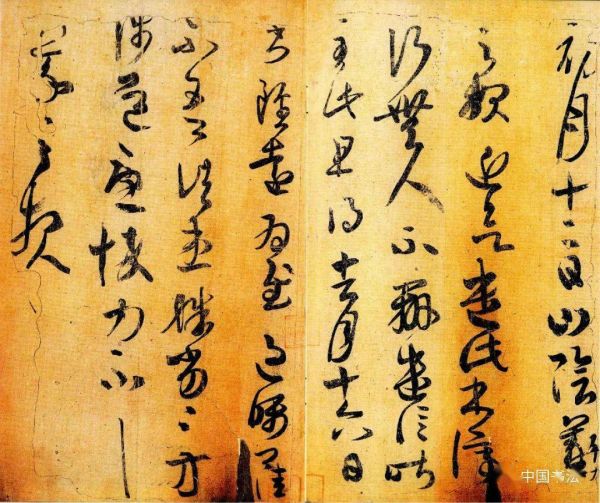 初月十二日山陰羲
之報近欲遣此書停
行無人不辦遣信昨
至此且得去月十六日
書雖遠為慰過囑卿佳
不吾諸患殊劣〻方
涉道憂悴力不具
羲之報
中国书法